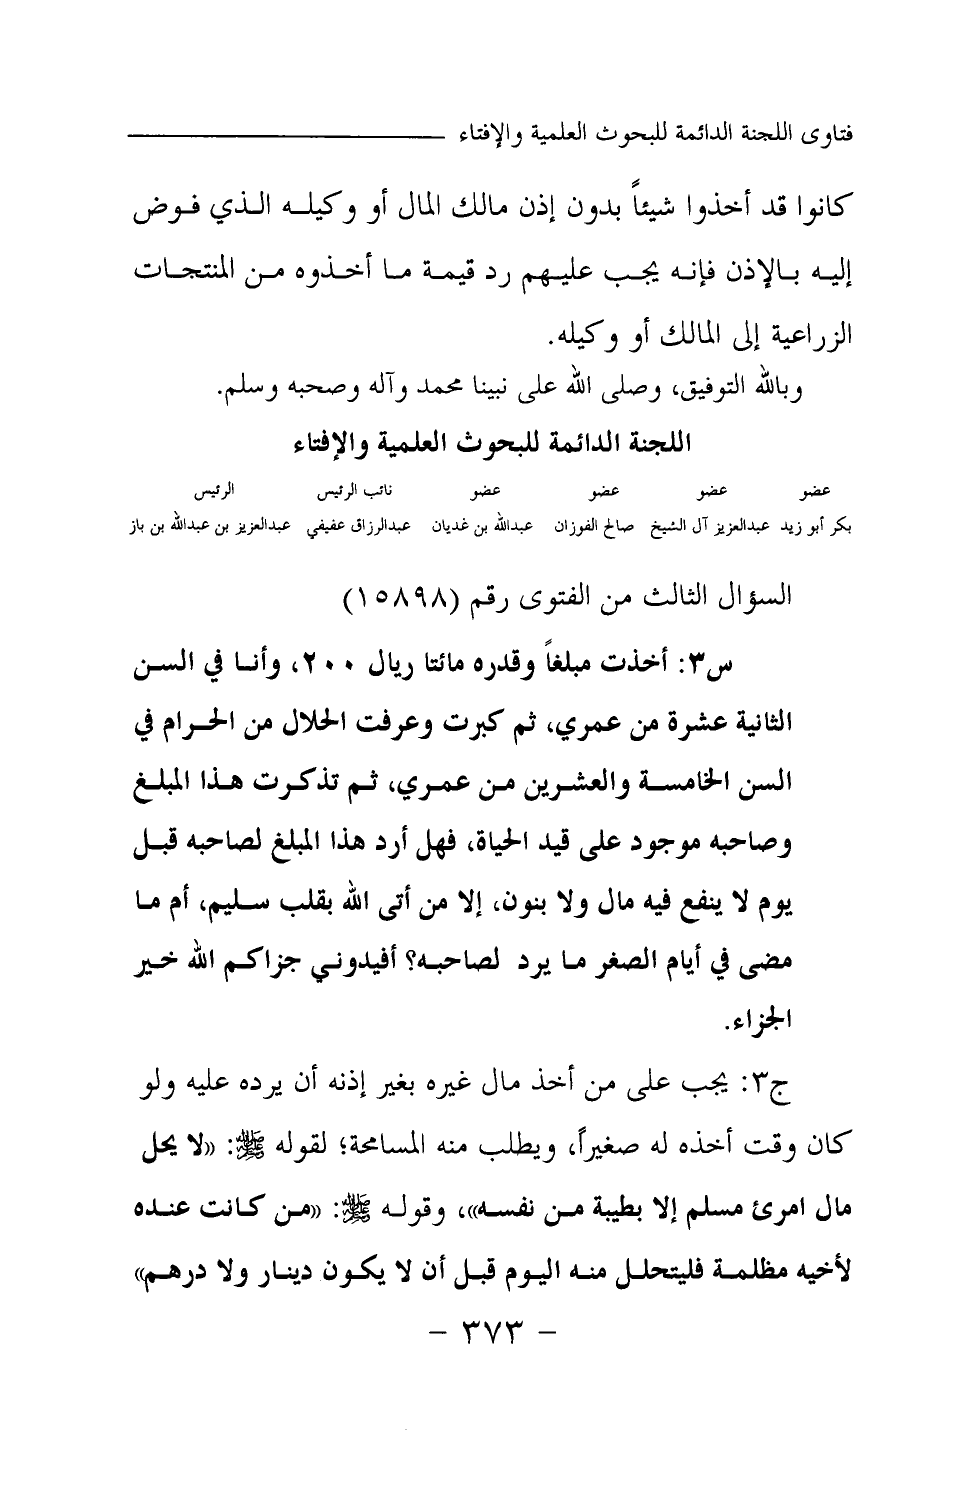 فتاوى اللجنة الدائمة للبحوث العلمية والإفتاء
كانوا قد أخذوا شيئاً بدون إذن مالك المال أو وكيلـه الـذي فـوض
إليـه بـالإذن فإنـه يجـب عليـهم رد قيمـة مـا أخـذوه مـن المنتجـات
الزراعية إلى المالك أو وكيله.
وبالله التوفيق، وصلى الله على نبينا محمد وآله وصحبه وسلم.
اللجنة الدائمة للبحوث العلمية والإفتاء
عضو عضو عضو عضو نائب الرئيس الرئيس
بكر أبو زيد عبدالعزيز آل الشيخ صالح الفوزان عبدالله بن غديان عبدالرزاق عفيفي عبدالعزيز بن عبدالله بن باز
السؤال الثالث من الفتوى رقم (١٥٨٩٨)
س٣: أخذت مبلغاً وقدره مائتا ريال ٢٠٠، وأنـا في السـن
الثانية عشرة من عمري، ثم كبرت وعرفت الحلال من الحـرام في
السن الخامسـة والعشـرين مـن عمـري، ثـم تذكـرت هـذا المبلـغ
وصاحبه موجود على قيد الحياة، فهل أرد هذا المبلغ لصاحبه قبـل
يوم لا ينفع فيه مال ولا بنون، إلا من أتى الله بقلب سـليم، أم مـا
مضى في أيام الصغر مـا يرد لصاحبـه؟ أفيدونـي جزاكـم الله خـير
الجزاء.
ج٣: يجب على من أخذ مال غيره بغير إذنه أن يرده عليه ولو
كان وقت أخذه له صغيراً، ويطلب منه المسامحة؛ لقوله ﷺ: «لا يحل
مال امرئ مسلم إلا بطيبة مـن نفسـه»، وقولـه ﷺ: «مـن كـانت عنـده
لأخيه مظلمـة فليتحلـل منـه اليـوم قبـل أن لا يكـون دينـار ولا درهـم»
- ٣٧٣ -